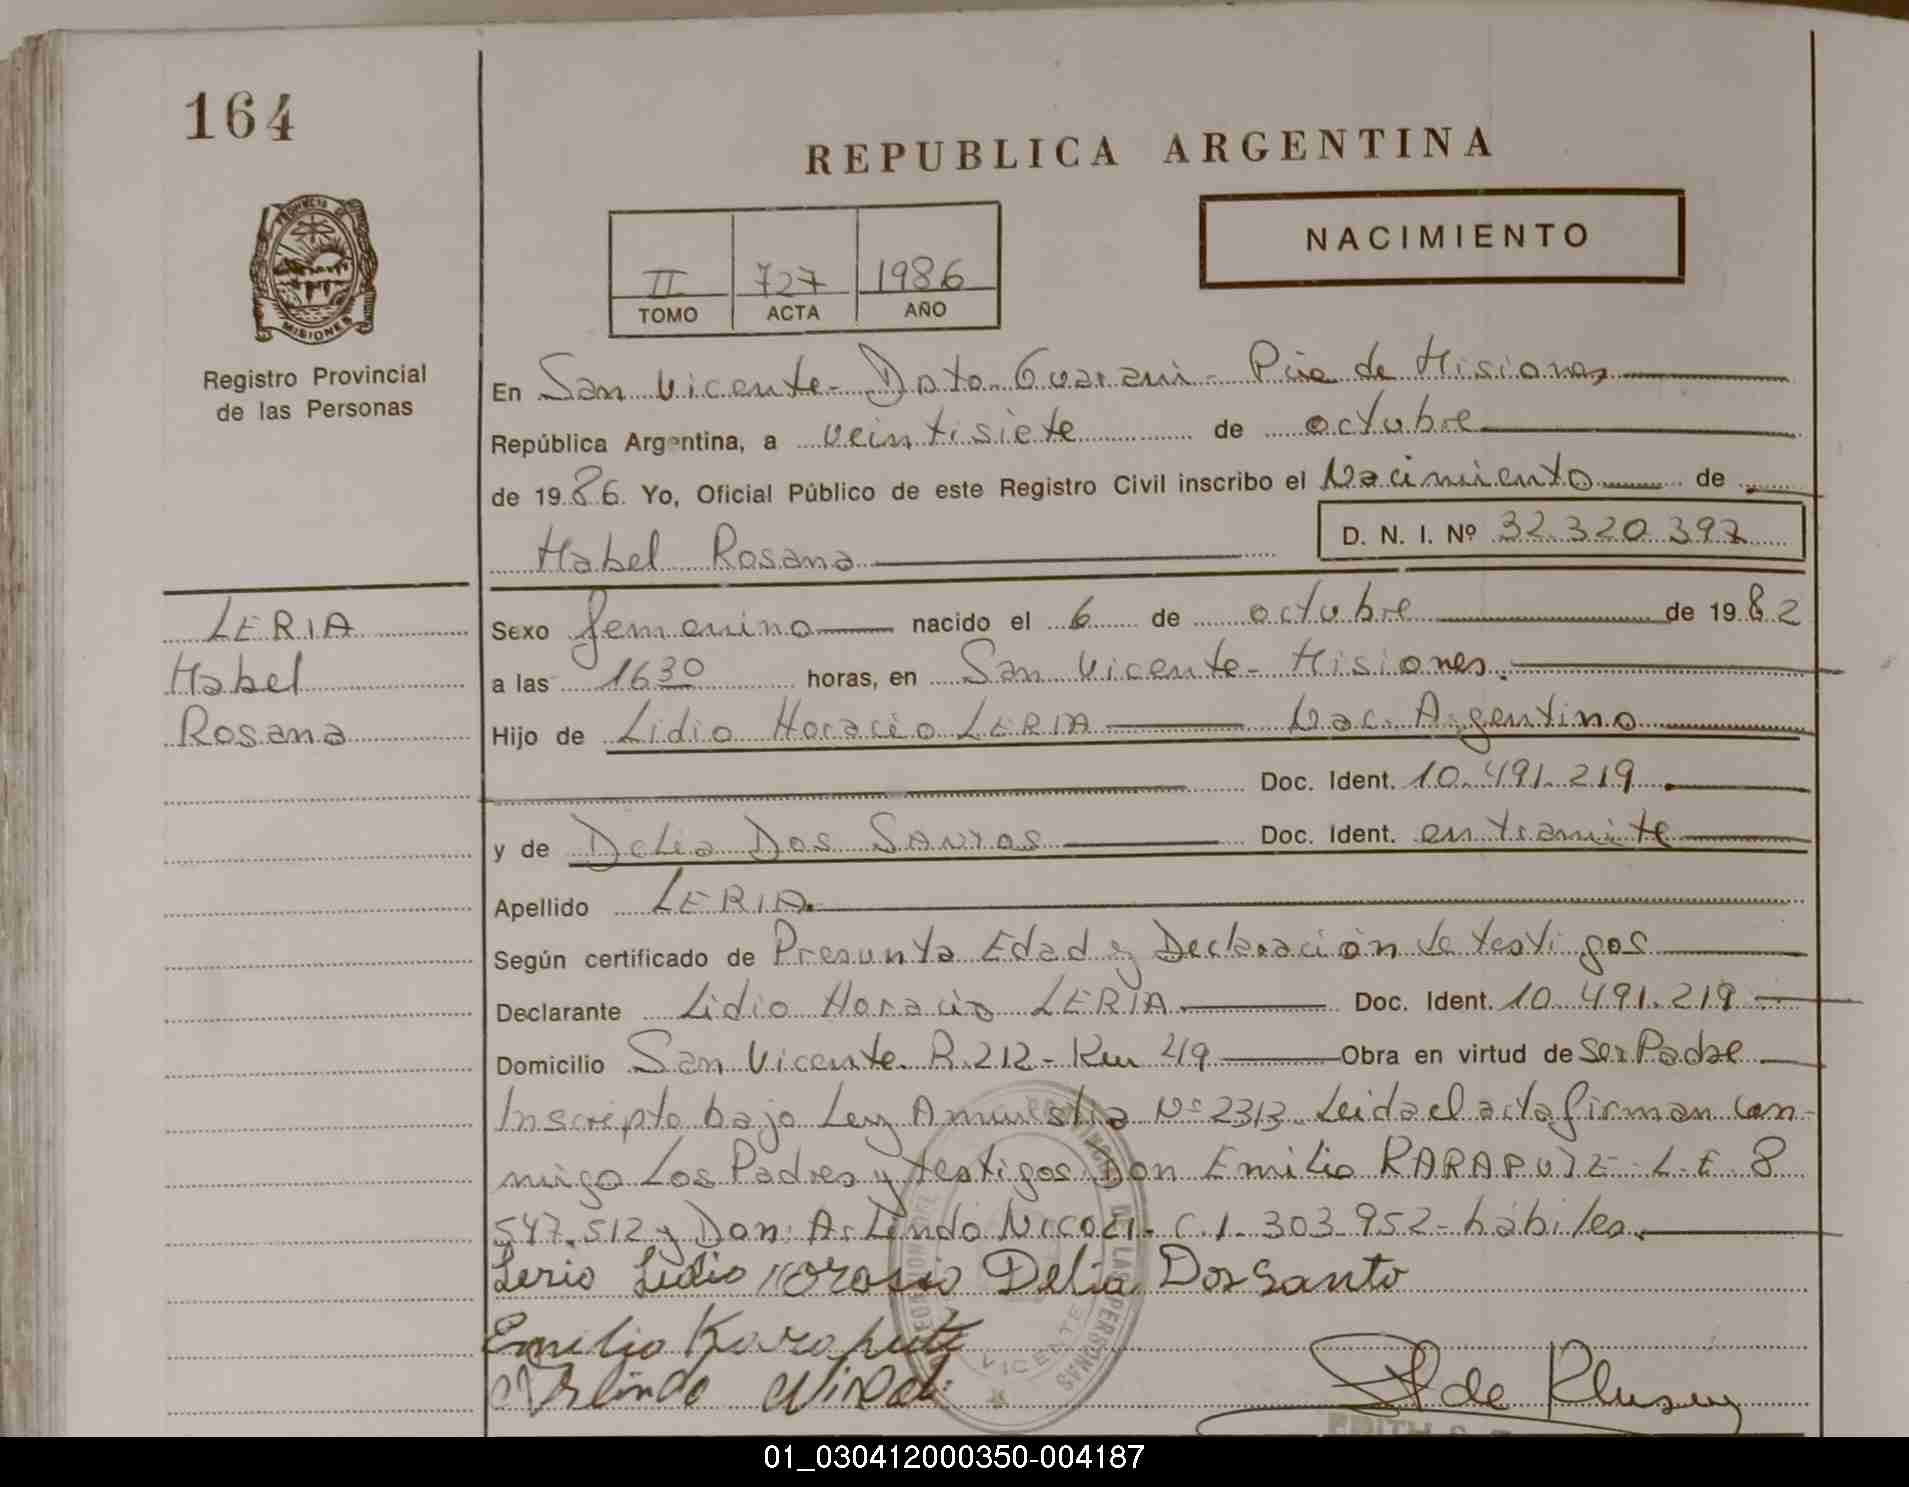 164
REPUBLICA ARGENTINA
PROVINCIA DE
MISIONES
NACIMIENTO
II 727 1986
TOMO ACTA AÑO
Registro Provincial
de las Personas
En San Vicente - Dpto Guarani - Pcia de Misiones
República Argentina, a veintisiete de octubre
de 1986. Yo, Oficial Público de este Registro Civil inscribo el Nacimiento de
Mabel Rosana D. N. I. Nº 32.320.397
LERIA
Mabel
Rosana
Sexo femenino nacido el 6 de octubre de 1982
a las 16 30 horas, en San Vicente - Misiones.
Hijo de Lidio Horacio LERIA Nac. Argentino
Doc. Ident. 10.491.219
y de Delia Dos SANTOS Doc. Ident. en tramite
Apellido LERIA.
Según certificado de Presunta Edad y Declaración de testigos
Declarante Lidio Horacio LERIA Doc. Ident. 10.491.219
Domicilio San Vicente. R.212 - Km 219 Obra en virtud de Ser Padre
Inscripto bajo Ley Amnistia Nº 2313. Leida el acta firman con-
migo Los Padres y testigos: Don Emilio KARAPUTE L.E. 8
547.512 y Don: Arlindo NICOLI - C.I. 303.952 - hábiles.
Lerio Lidio Horasio Delia Dos Santo
Emilio KaraputE
Arlindo
VICENTE
DE LAS PERSONAS
de
01_030412000350-004187